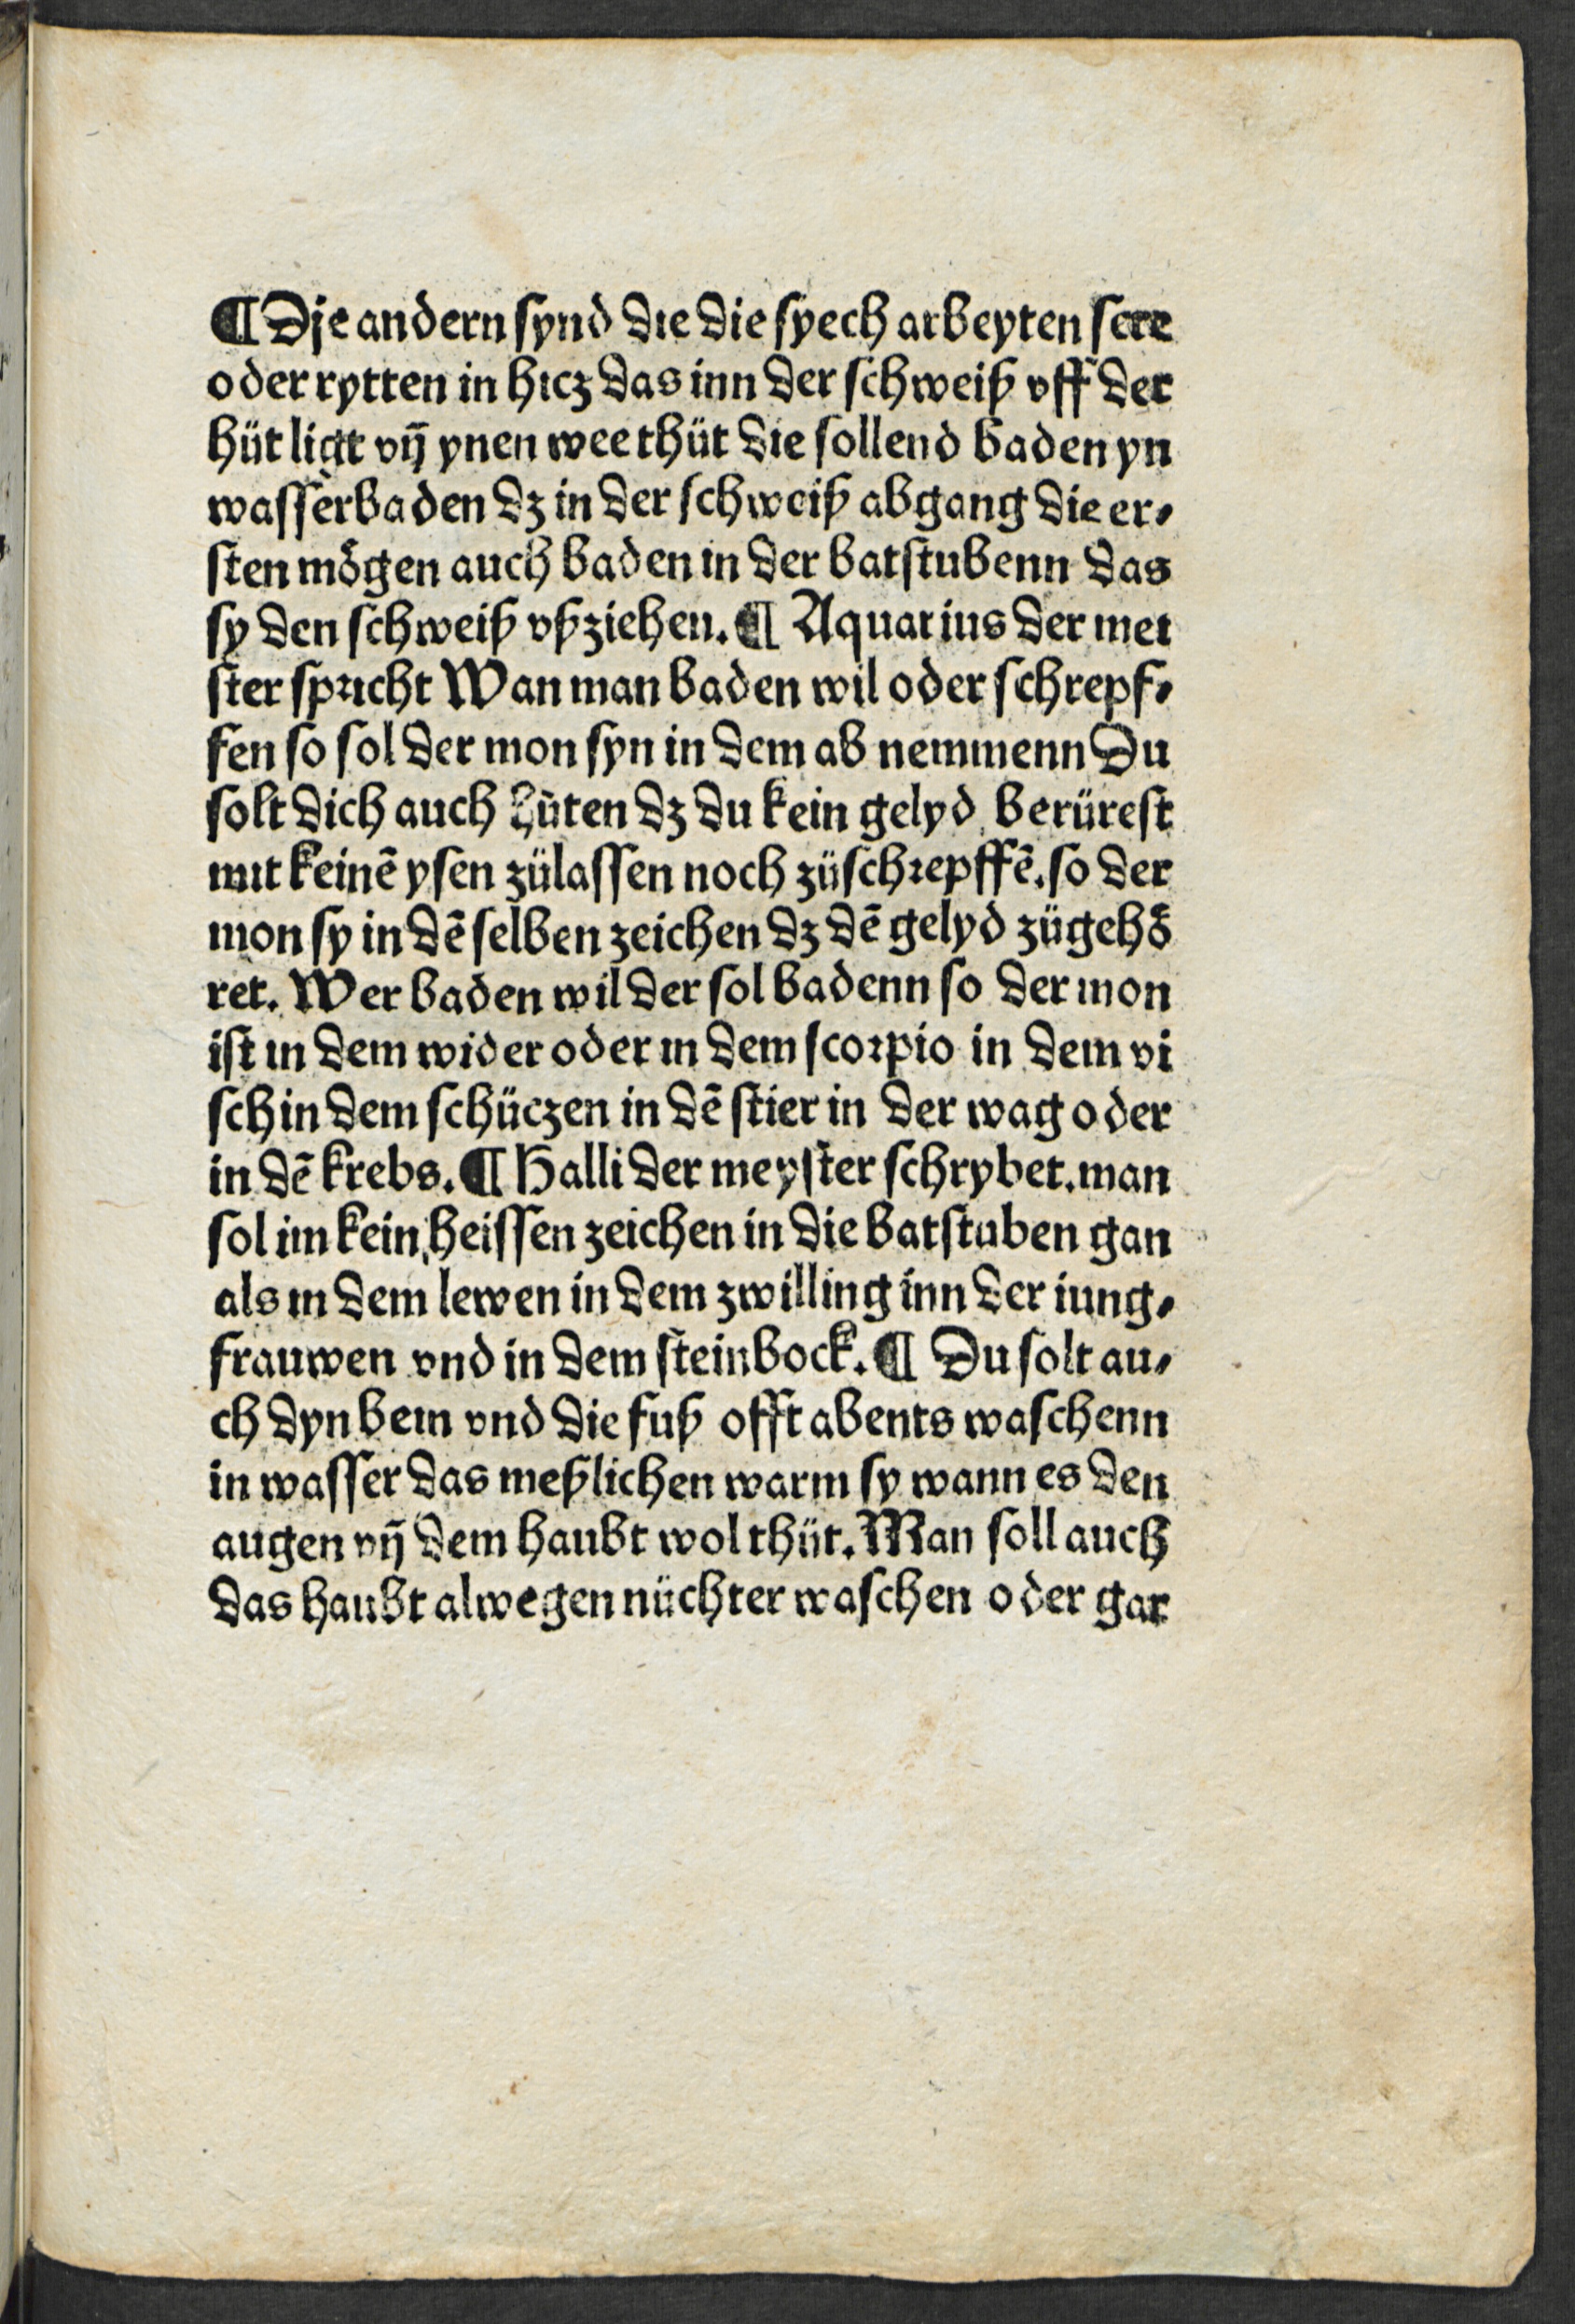 ¶ Dje andern synd die die syech arbeyten sere
oder rytten in hicz das inn der schweiß vff der
hüt ligt vñ ynen wee thüt die sollend baden yn
wasserbaden dz in der schweiß abgang die er⸗
sten mögen auch baden in der batstubenn das
sy den schweiß vßziehen. ¶ Aquarius der mei
ster spricht Wan man baden wil oder schrepf⸗
fen so sol der mon syn in dem ab nemmenn Du
solt dich auch hüten dz du kein gelyd berürest
mit keinē ysen zülassen noch züschrepffē. so der
mon sy in dē selben zeichen dz dē gelyd zügehö
ret. Wer baden wil der sol badenn so der mon
ist in dem wider oder in dem scorpio in dem vi
sch in dem schüczen in dē stier in der wag oder
in dē krebs. ¶ Halli der meyster schrybet. man
sol im kein heissen zeichen in die batstuben gan
als in dem lewen in dem zwilling inn der iung⸗
frauwen vnd in dem steinbock. ¶ Du solt au⸗
ch dyn bein vnd die fuß offt abents waschenn
in wasser das meßlichen warm sy wann es den
augen vñ dem haubt wol thüt. Man soll auch
das haubt alwegen nüchter waschen oder gar